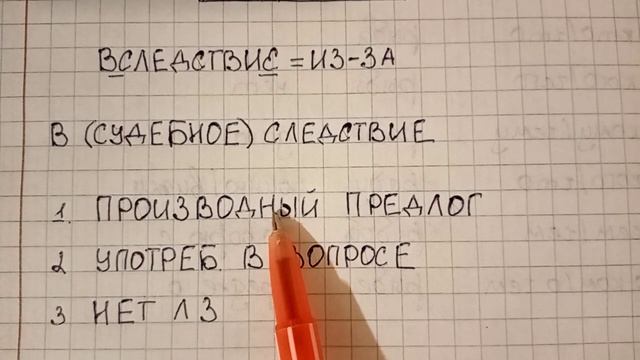 ВСЛЕДСТВИЕ = ИЗ-ЗА
В (СУДЕБНОЕ) СЛЕДСТВИЕ
1. ПРОИЗВОДНЫЙ ПРЕДЛОГ
2 УПОТРЕБ. В ВОПРОСЕ
3 НЕТ ЛЗ